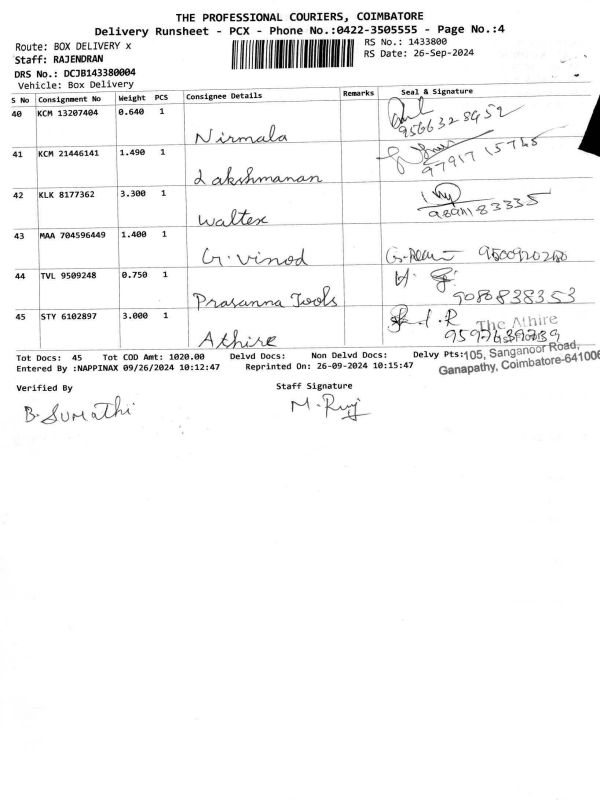 THE PROFESSIONAL COURIERS, COIMBATORE
Delivery Runsheet - PCX - Phone No.:0422-3505555 - Page No.:4
Route: BOX DELIVERY x
RS No.: 1433800
Staff: RAJENDRAN
RS Date: 26-Sep-2024
DRS No.: DCJB143380004
Vehicle: Box Delivery
S No Consignment No Weight PCS Consignee Details Remarks Seal & Signature
40 KCM 13207404 0.640 1
Nirmala
41 KCM 21446141 1.490 1
Lakshmanan 9791715745
42 KLK 8177362 3.300 1
Waltex
43 MAA 704596449 1.400 1
G. Vinod
44 TVL 9509248 0.750 1
Prasanna Tools 9080838353
45 STY 6102897 3.000 1
Athire
The Athire
Tot Docs: 45 Tot COD Amt: 1020.00 Delvd Docs: Non Delvd Docs: Delvy Pts:
105, Sanganoor Road,
Entered By :NAPPINAX 09/26/2024 10:12:47 Reprinted On: 26-09-2024 10:15:47
Ganapathy, Coimbatore-641006
Verified By Staff Signature
B. Sumathi